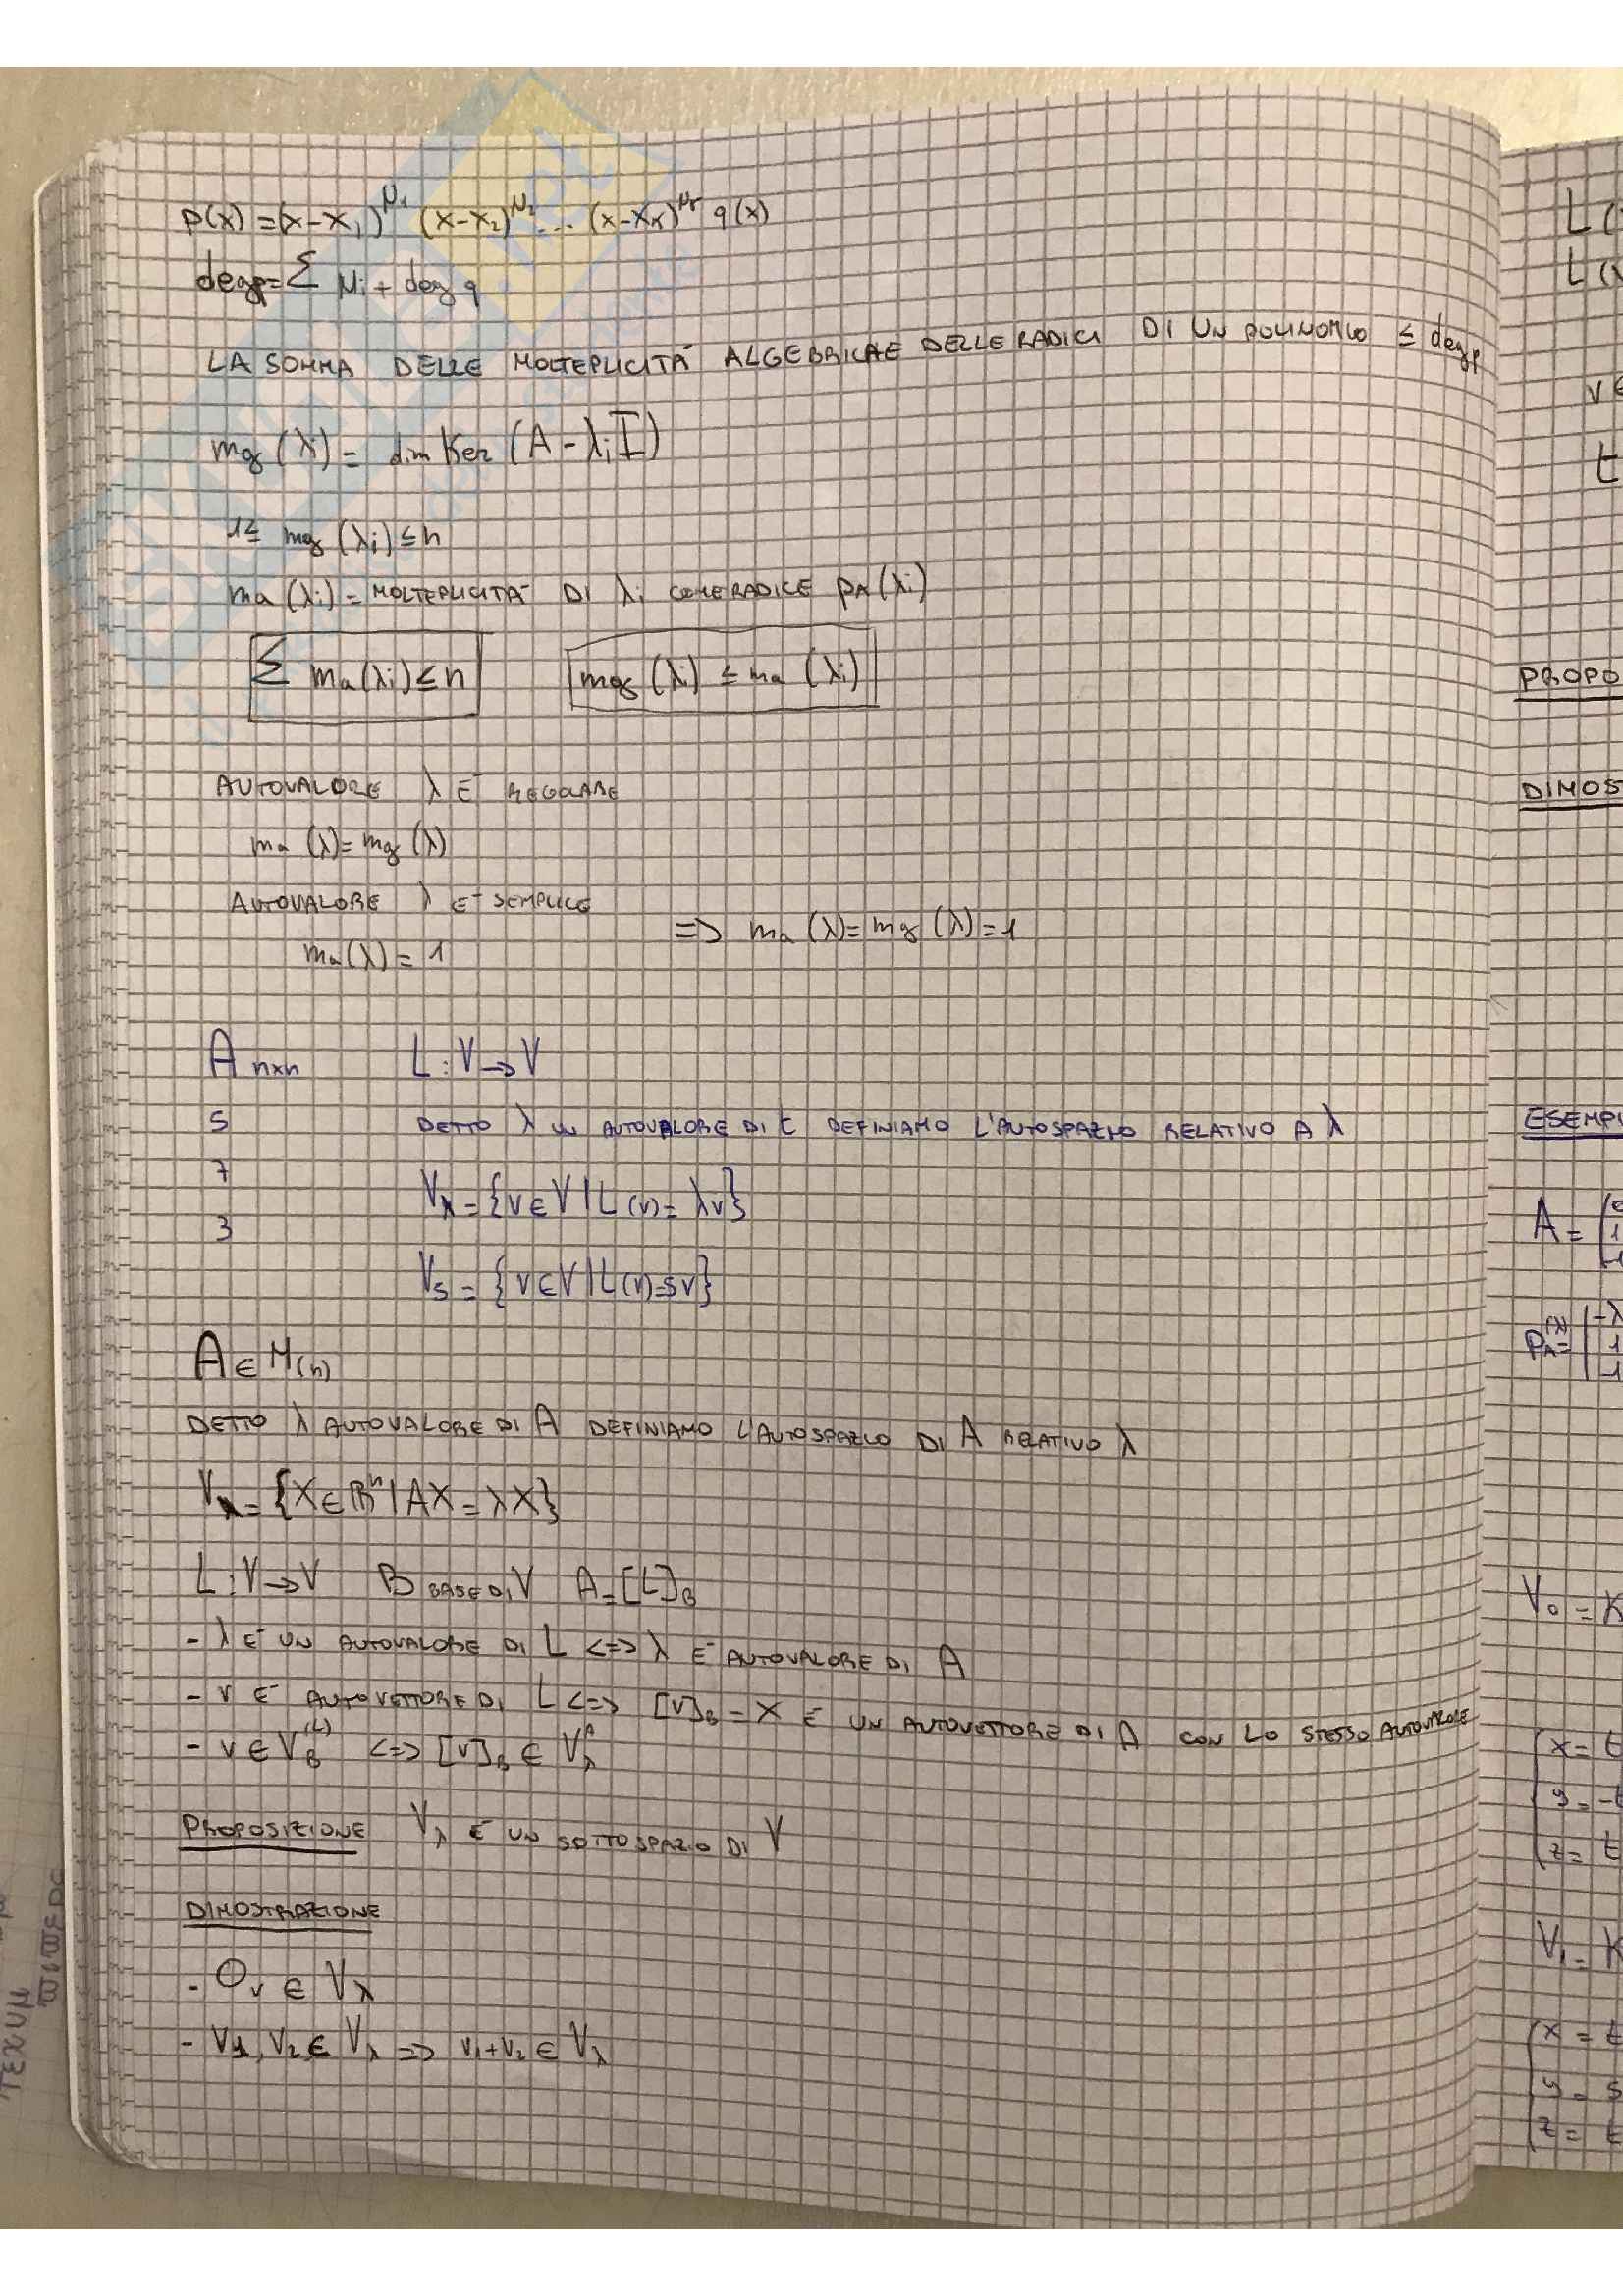 p(x) = (x-x₁)^μ₁ (x-x₂)^μ₂ ... (x-x_k)^μr q(x)
deg p = Σ μi + deg q
LA SOMMA DELLE MOLTEPLICITÀ ALGEBRICAE DELLE RADICI DI UN POLINOMIO ≤ deg p
mg(λi) = dim Ker (A - λiI)
1 ≤ mg(λi) ≤ n
ma(λi) = MOLTEPLICITÀ DI λi COME RADICE pA(λi)
Σ ma(λi) ≤ n mg(λi) ≤ ma(λi)
AUTOVALORE λ È REGOLARE
ma(λ) = mg(λ)
AUTOVALORE λ È SEMPLICE
ma(λ) = 1 => ma(λ) = mg(λ) = 1
A nxn L: V → V
5 DETTO λ UN AUTOVALORE DI L DEFINIAMO L'AUTOSPAZIO RELATIVO A λ
7 Vλ = {v ∈ V | L(v) = λv}
3
V5 = {v ∈ V | L(v) = 5v}
A ∈ M(n)
DETTO λ AUTOVALORE DI A DEFINIAMO L'AUTOSPAZIO DI A RELATIVO λ
Vλ = {X ∈ ℝⁿ | AX = λX}
L: V → V B BASE DI V A = [L]B
- λ È UN AUTOVALORE DI L <=> λ È AUTOVALORE DI A
- v È AUTOVETTORE DI L <=> [v]B = X È UN AUTOVETTORE DI A CON LO STESSO AUTOVALORE
- v ∈ V_B^(L) <=> [v]B ∈ Vλ^A
PROPOSIZIONE Vλ È UN SOTTOSPAZIO DI V
DIMOSTRAZIONE
- 0v ∈ Vλ
- V1, V2 ∈ Vλ => V1+V2 ∈ Vλ
L (
L (λ
v ∈
t
PROPO
DIMOS
ESEMPI
A =
pA(λ) = | -λ
1
-1
V0 = K
x = t
y = -t
z = t
V1 = K
x = t
y = s
z = t